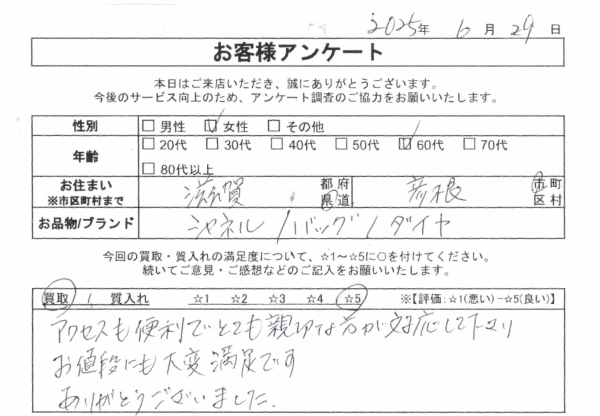 2025年 6月 29日
お客様アンケート
本日はご来店いただき、誠にありがとうございます。
今後のサービス向上のため、アンケート調査のご協力をお願いいたします。
性別 □男性 ☑女性 □その他
年齢 □20代 □30代 □40代 □50代 ☑60代 □70代
□80代以上
お住まい ※市区町村まで 滋賀 都府県道 彦根 市町区村
お品物/ブランド シャネル / バッグ / ダイヤ
今回の買取・質入れの満足度について、☆1～☆5に○を付けてください。
続いてご意見・ご感想などのご記入をお願いいたします。
買取 / 質入れ ☆1 ☆2 ☆3 ☆4 ☆5 ※【評価:☆1(悪い)-☆5(良い)】
アクセスも便利でとても親切な方が対応して下さり
お値段にも大変満足です
ありがとうございました.